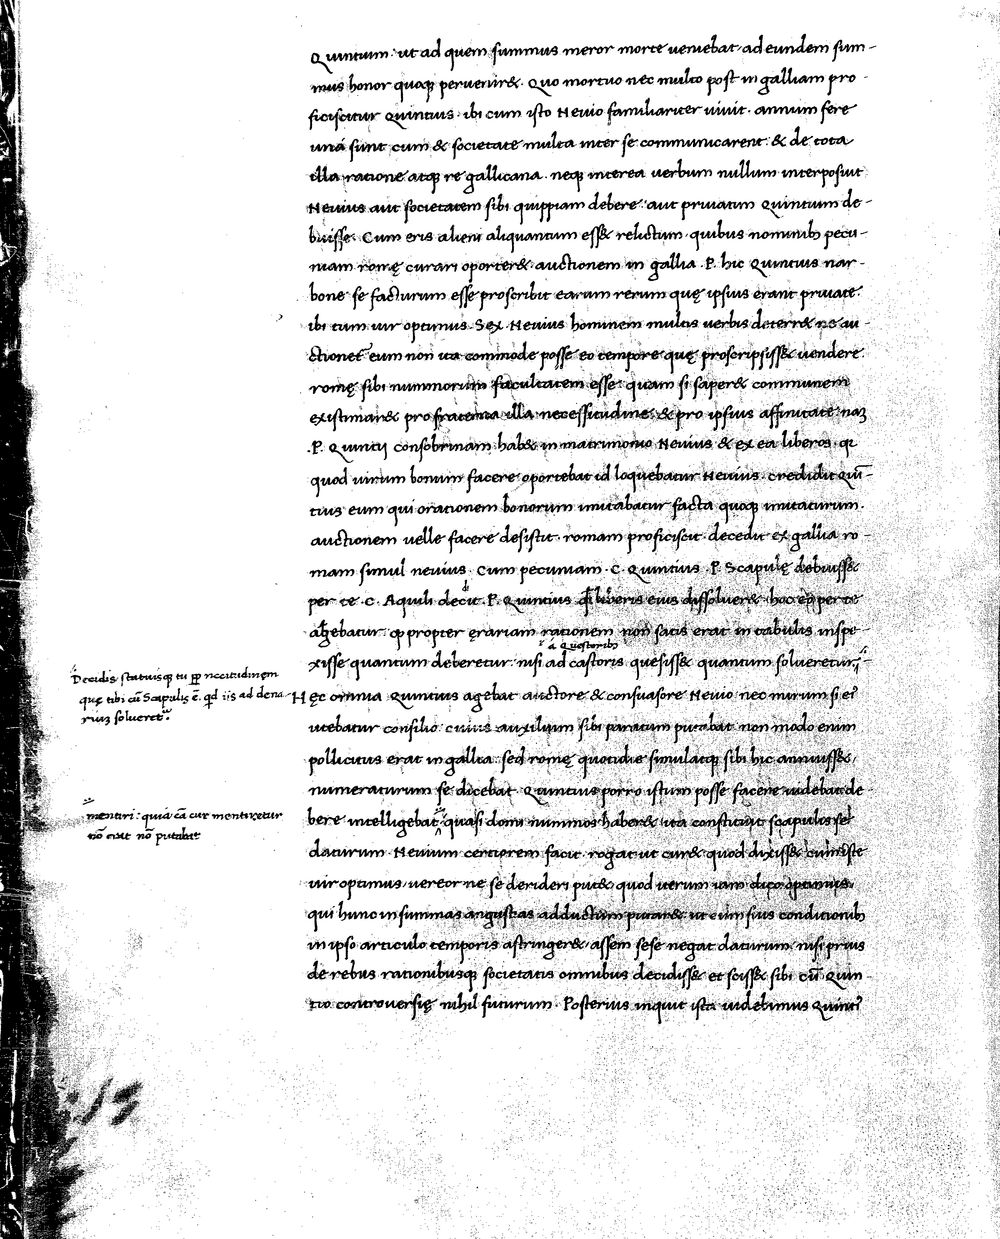 Quintium · ut ad quem summus meror morte veniebat · ad eundem sum-
mus honor quoqꝫ pervenir&. Quo mortuo nec multo post in galliam pro
ficiscitur Quintius · ibi cum isto Nevio familiariter vivit · annum fere
una sunt cum & societate multa inter se communicarent · & de tota
illa ratione atqꝫ re gallicana · neqꝫ interea verbum nullum interposuit
Nevius aut societatem sibi quippiam debere · aut privatim Quintium de-
buisse. Cum eris alieni aliquantum ess& relictum · quibus nominibꝫ pecu-
niam romę curari oporter& · auctionem in gallia .P. hic Quintius nar-
bone se facturum esse proscribit earum rerum quę ipsius erant private.
ibi tum vir optimus · Sex. Nevius hominem multis verbis deterr& ne au-
ctionet eum non ita commode posse eo tempore quę proscripsiss& vendere.
romę sibi nummorum facultatem esse · quam si saper& communem
existimar& pro fraterna illa necessitudine · & pro ipsius affinitate · naꝫ
.P. Quintij consobrinam hab& in matrimonio Nevius & ex ea liberos · qꝛ
quod virum bonum facere oportebat id loquebatur Nevius · credidit Quī
tius eum qui orationem bonorum imitabatur facta quoqꝫ imitaturum.
auctionem velle facere desistit · romam proficiscit · decedit ex gallia ro-
mam simul nevius. Cum pecuniam .C. Quintius .P. Scapulę debuiss&
per te .C. Aquili decit .P. Quintius qđ liberis eius dissolver& hoc eo per te
agebatur · qꝫ propter ęrariam rationem non satis erat in tabulis inspe-
à Questoribꝫ
xisse quantum deberetur · nisi ad castoris quesiss& quantum solveretur
Decidis statuisqꝫ tu ꝓp nccitudinem
quę tibi cū Scapulis ē. qđ iis ad dena
riuꝫ solveret̄.
Hęc omnia Quintius agebat auctore & consuasore Nevio · nec mirum si ei
utebatur consilio cuius auxilium sibi paratum putabat · non modo enim
pollicitus erat in gallia · sed romę quotidie simulatqꝫ sibi hic annuiss&
numeraturum se dicebat · Quintius porro istum posse facere videbat · de
bere intelligebat · quasi domi nummos haber& ita constituit scapulis se
mentiri : quia cā cur mentiretur
nō erat nō putabat
daturum · Nevium certiorem facit · rogat ut cur& quod dixiss& cum iste
vir optimus · vereor ne se derideri put& quod iterum iam dico optimus
qui hunc in summas angustias adductum putar& · ut eum suis conditionibꝫ
in ipso articulo temporis astringer& · assem sese negat daturum · nisi prius
de rebus rationibusqꝫ societatis omnibus decidiss& et sciss& sibi cū Quin-
tio controversię nihil futurum · Posterius inquit ista videbimus Quinti